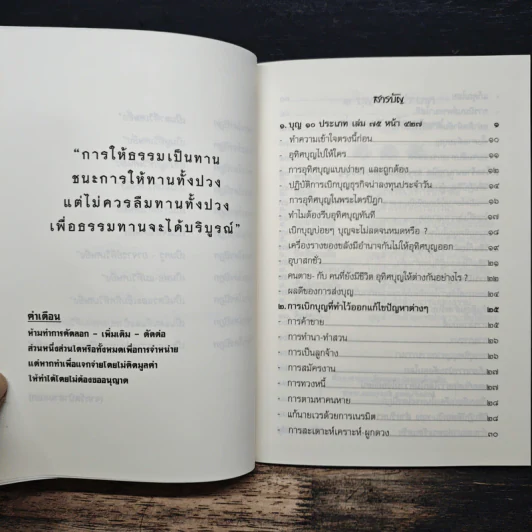 “การให้ธรรมเป็นทาน
ชนะการให้ทานทั้งปวง
แต่ไม่ควรลืมทานทั้งปวง
เพื่อธรรมทานจะได้บริบูรณ์”
คำเตือน
ห้ามทำการคัดลอก – เพิ่มเติม – ตัดต่อ
ส่วนหนึ่งส่วนใดหรือทั้งหมดเพื่อการจำหน่าย
แต่หากทำเพื่อแจกจ่ายโดยไม่คิดมูลค่า
ให้ทำได้โดยไม่ต้องขออนุญาต
สารบัญ
๑. บุญ ๑๐ ประเภท เล่ม ๗๕ หน้า ๔๒๗ ๑
- ทำความเข้าใจตรงนี้ก่อน ๑๐
- อุทิศบุญไปให้ใคร ๑๑
- การอุทิศบุญแบบง่ายๆ และถูกต้อง ๑๔
- ปฏิบัติการเบิกบุญธุรกิจน่าลงทุนประจำวัน ๑๔
- การอุทิศบุญในพระไตรปิฎก ๑๖
- ทำไมต้องรีบอุทิศบุญทันที ๑๗
- เบิกบุญบ่อยๆ บุญจะไม่ลดจนหมดหรือ ? ๑๘
- เครื่องรางของขลังมีอำนาจกันไม่ให้อุทิศบุญออก ๑๙
- อุบาสกชั่ว ๒๑
- คนตาย- กับ คนที่ยังมีชีวิต อุทิศบุญให้ต่างกันอย่างไร ? ๒๒
- ผลดีของการส่งบุญ ๒๔
๒. การเบิกบุญที่ทำไว้ออกแก้ไขปัญหาต่างๆ ๒๕
- การค้าขาย ๒๕
- การทำนา-ทำสวน ๒๖
- การเป็นลูกจ้าง ๒๖
- การสมัครงาน ๒๗
- การทวงหนี้ ๒๗
- การตามหาคนหาย ๒๘
- แก้นายเวรด้วยการเนรมิต ๒๘
- การสะเดาะห์เคราะห์-ผูกดวง ๓๐